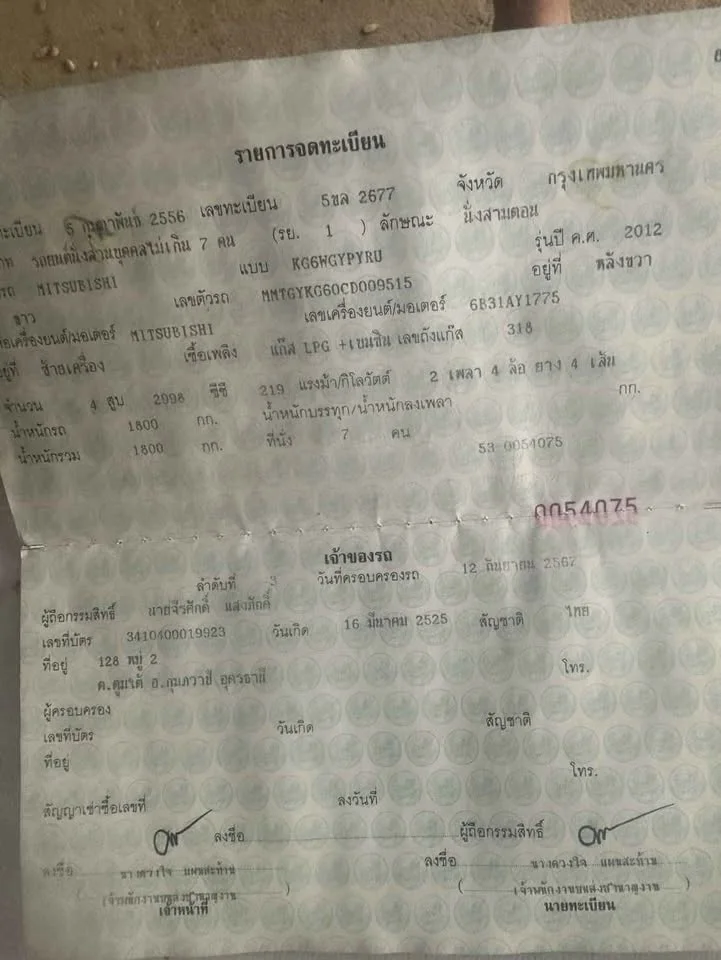 รายการจดทะเบียน
ทะเบียน 5 กุมภาพันธ์ 2556 เลขทะเบียน 5ขล 2677 จังหวัด กรุงเทพมหานคร
รถยนต์นั่งส่วนบุคคลไม่เกิน 7 คน (รย. 1 ) ลักษณะ นั่งสามตอน
รถ MITSUBISHI แบบ KG6WGYPYRU รุ่นปี ค.ศ. 2012
ขาว เลขตัวรถ MMTGYKG60CD009515 อยู่ที่ หลังขวา
เครื่องยนต์/มอเตอร์ MITSUBISHI เลขเครื่องยนต์/มอเตอร์ 6B31AY1775
อยู่ที่ ซ้ายเครื่อง เชื้อเพลิง แก๊ส LPG +เบนซิน เลขถังแก๊ส 318
จำนวน 4 สูบ 2998 ซีซี 219 แรงม้า/กิโลวัตต์ 2 เพลา 4 ล้อ ยาง 4 เส้น
น้ำหนักรถ 1800 กก. น้ำหนักบรรทุก/น้ำหนักลงเพลา กก.
น้ำหนักรวม 1800 กก. ที่นั่ง 7 คน
53-0054075
0054075
เจ้าของรถ
ลำดับที่ วันที่ครอบครองรถ 12 กันยายน 2567
ผู้ถือกรรมสิทธิ์ นายจีรศักดิ์
เลขที่บัตร 3410400019923 วันเกิด 16 มีนาคม 2525 สัญชาติ ไทย
ที่อยู่ 128 หมู่ 2 โทร.
ต.ตูมใต้ อ.กุมภวาปี อุดรธานี
ผู้ครอบครอง
เลขที่บัตร วันเกิด สัญชาติ
ที่อยู่ โทร.
สัญญาเช่าซื้อเลขที่ ลงวันที่
ลงชื่อ ผู้ถือกรรมสิทธิ์
ลงชื่อ นางดวงใจ แผนสะท้าน ลงชื่อ นางดวงใจ แผนสะท้าน
(เจ้าพนักงานขนส่งชำนาญงาน) (เจ้าพนักงานขนส่งชำนาญงาน)
เจ้าหน้าที่ นายทะเบียน